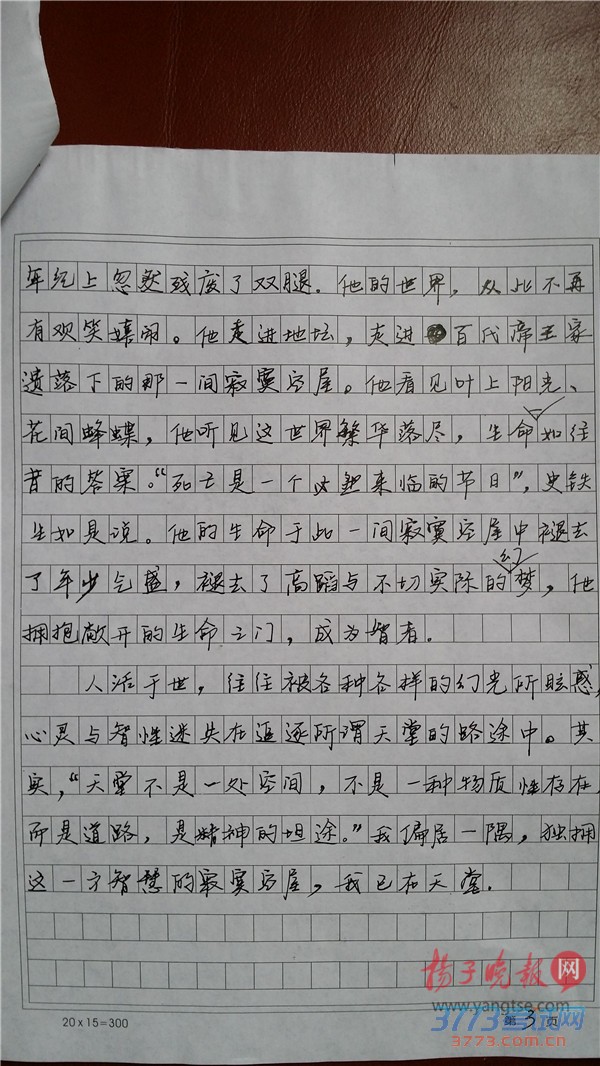 年纪上忽然残废了双腿.他的世界,从此不再
有欢笑嬉闹。他走进地坛,走进百代帝王家
遗落下的那一间寂寞空屋。他看见叶上阳光、
花间蜂蝶,他听见这世界繁华落尽,生命如往
昔的答案。“死亡是一个必然来临的节日”,史铁
生如是说。他的生命于此一间寂寞空屋中褪去
了年少气盛,褪去了高蹈与不切实际的幻梦,他
拥抱敞开的生命之门,成为智者.
人活于世,往往被各种各样的幻光所眩惑,
心灵与智性迷失在追逐所谓天堂的路途中。其
实,“天堂不是一处空间,不是一种物质性存在,
而是道路,是精神的坦途。”我偏居一隅,独拥
这一方智慧的寂寞空屋,我已在天堂.
扬子晚报网
www.yangtse.com
20x15=300
第3页
3773考试网
3773.com.cn